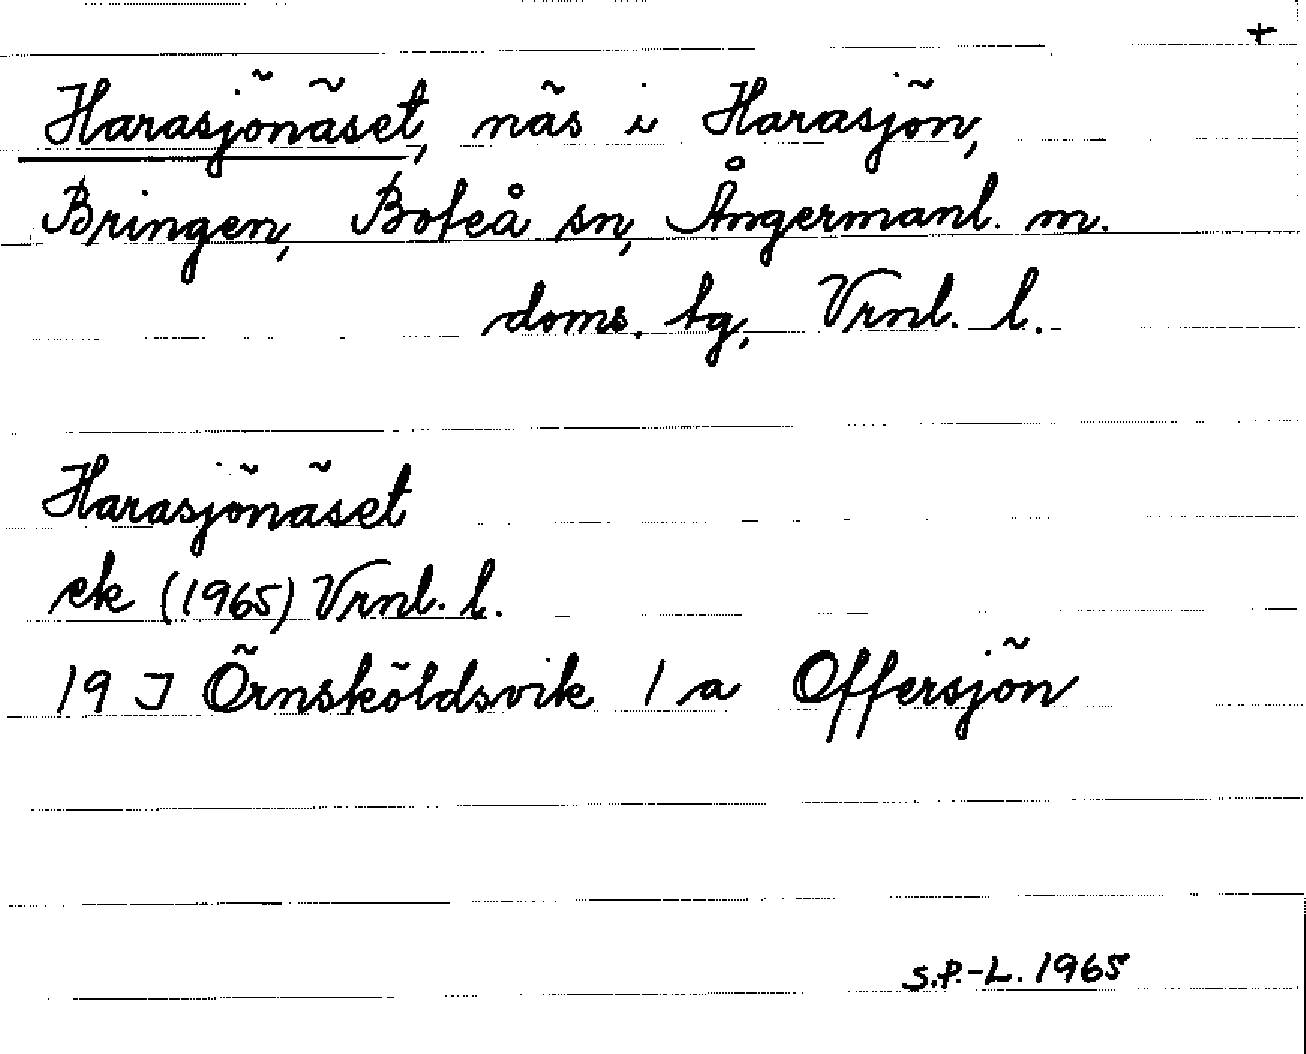 +
Harasjönäset, näs i Harasjön,
Bringen, Boteå sn, Ångermanl. m.
doms. tg, Vrnl. l.
Harasjönäset
ek (1965) Vrnl. l.
19 J Örnsköldsvik 1 a Offersjön
S.P.-L. 1965